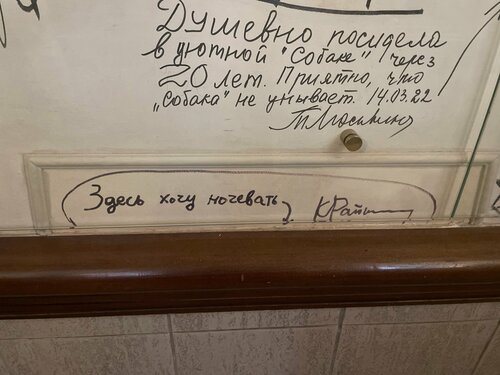 Душевно посидела
в уютной "Собаке" через
20 лет. Приятно, что
„Собака" не унывает. 14.03.22
Здесь хочу ночевать